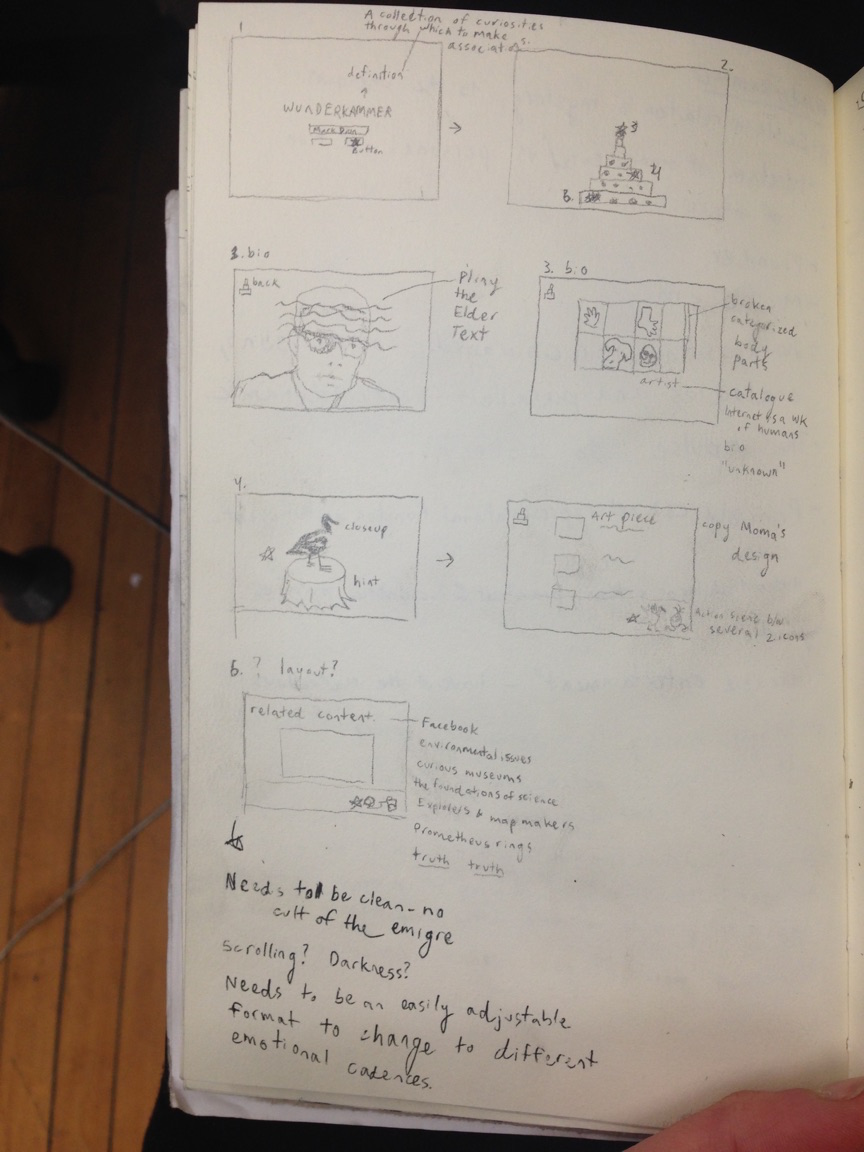 1
A collection of curiosities
through which to make
associations.
definition
WUNDERKAMMER
Mark Dion
button
2.
3
4
5.
3. bio
back
Pliny
the
Elder
Text
3. bio
broken
categorized
body
parts
artist
catalogue
internet is a WK
of humans
bio
"unknown"
4.
closeup
hint
Art piece
copy Moma's
design
Action scene b/w
several 2 icons
? layout?
related content
Facebook
environmental issues
curious museums
the foundations of science
Explorers & map makers
Prometheus rings
truth truth
Needs to be clean - no
cult of the emigre
Scrolling? Darkness?
Needs to be an easily adjustable
format to change to different
emotional cadences.